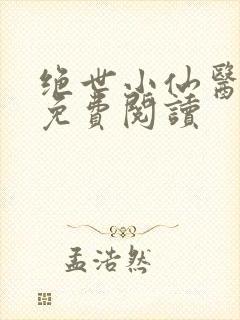 绝世小仙醫
免費閱讀
孟浩然